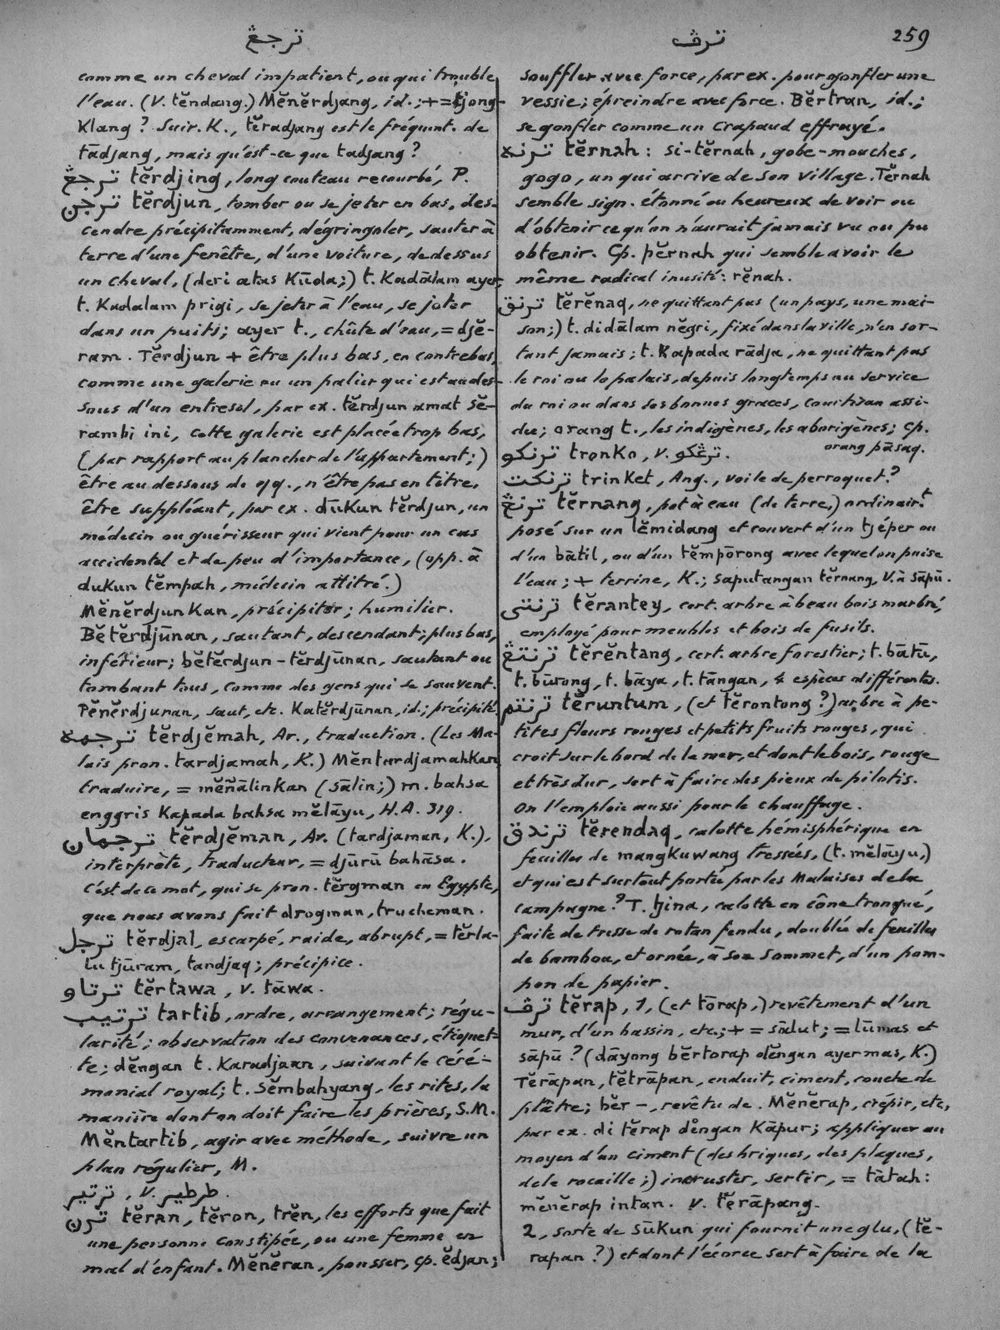 ترجڠ
ترف
259
comme un cheval impatient, ou qui trouble
l'eau. (V. tĕndang.) Mĕnĕrdjang, id.; + = tjong-
Klang? Suiv. K., tĕradjang est le fréquent. de
tādjang, mais qu'est-ce que tadjang?
ترجڠ tĕrdjing, long couteau recourbé, P.
ترجن tĕrdjun, tomber ou se jeter en bas, des-
cendre précipitamment, dégringoler, sauter à
terre d'une fenêtre, d'une voiture, de dessus
un cheval, (deri atas Kūda;) t. Kadālam ayer,
t. Kadalam prigi, se jeter à l'eau, se jeter
dans un puits; ayer t., chûte d'eau, = djĕ-
ram. Tĕrdjun + être plus bas, en contrebas,
comme une galerie ou un palier qui est au des-
sous d'un entresol, par ex. tĕrdjun amat sĕ-
rambi ini, cette galerie est placée trop bas,
(par rapport au plancher de l'appartement;)
être au dessous de qq., n'être pas en titre,
être suppléant, par ex. dūkun tĕrdjun, un
médecin ou guérisseur qui vient pour un cas
accidentel et de peu d'importance, (opp. à
dukun tĕmpah, médecin attitré.)
Mĕnĕrdjunkan, précipiter; humilier.
Bĕtĕrdjūnan, sautant, descendant; plus bas,
inférieur; bĕtĕrdjun-tĕrdjūnan, sautant ou
tombant tous, comme des gens qui se sauvent.
Pĕnĕrdjunan, saut, etc. Katĕrdjūnan, id.; précipité.
ترجمه tĕrdjĕmah, Ar., traduction. (Les Ma-
lais pron. tardjamah, K.) Mĕntardjamahkan
traduire, = mĕñālinkan (sālin;) m. bahsa
enggris Kapada bahsa mĕlāyu, H.A. 319.
ترجمان tĕrdjĕman, Ar. (tardjaman, K.),
interprète, traducteur, = djūrū bahāsa.
C'est de ce mot, qui se pron. tĕrgman en Egypte,
que nous avons fait drogman, trucheman.
ترجل tĕrdjal, escarpé, raide, abrupt, = tĕrla-
lu tjūram, tandjaq; précipice.
ترتاو tĕrtawa, v. tāwa.
ترتيب tartib, ordre, arrangement; régu-
larité; observation des convenances, étiquet-
te; dĕngan t. Karadjaan, suivant le céré-
monial royal; t. Sĕmbahyang, les rites, la
manière dont on doit faire les prières, S.M.
Mĕntartib, agir avec méthode, suivre un
plan régulier, M.
ترتير, v. طرطير.
ترن tĕran, tĕron, trĕn, les efforts que fait
une personne constipée, ou une femme en
mal d'enfant. Mĕnĕran, pousser, cp. ĕdjan;
souffler avec force, par ex. pour gonfler une
vessie; épreindre avec force. Bĕrtran, id.;
se gonfler comme un crapaud effrayé.
ترنه tĕrnah: si-tĕrnah, gobe-mouches,
gogo, un qui arrive de son village. Tĕrnah
semble sign. étonné ou heureux de voir ou
d'obtenir ce qu'on n'aurait jamais vu ou pu
obtenir. Cp. pĕrnah qui semble avoir le
même radical inusité: rĕnah.
ترنق tĕrĕnaq, ne quittant pas (un pays, une mai-
son;) t. didālam nĕgri, fixé dans la ville, n'en sor-
tant jamais; t. Kapada rādja, ne quittant pas
le roi ou le palais, depuis longtemps au service
du roi ou dans ses bonnes graces, courtisan assi-
du; orang t., les indigènes, les aborigènes; cp.
orang pāsaq.
ترنكو tronko, v. ترڠكو.
ترنكت trinket, Ang., voile de perroquet?
ترنڠ tĕrnang, pot à eau (de terre,) ordinair.t
posé sur un lĕmidang et couvert d'un tjéper ou
d'un bātil, ou d'un tĕmpōrong avec lequel on puise
l'eau; + terrine, K.; saputangan tĕrnang, V. à sāpū.
ترنتي tĕrantey, cert. arbre à beau bois marbré,
employé pour meubles et bois de fusils.
ترنتڠ tĕrĕntang, cert. arbre forestier; t. bātū,
t. būrong, t. bāya, t. tāngan, 4 espèces différentes.
ترنتم tĕruntum, (et tĕrontong?) arbre à pe-
tites fleurs rouges et petits fruits rouges, qui
croît sur le bord de la mer, et dont le bois, rouge
et très dur, sert à faire des pieux de pilotis.
On l'emploie aussi pour le chauffage.
ترندق tĕrendaq, calotte hémisphérique en
feuilles de mangkuwang tressées, (t. mĕlāyu,)
et qui est surtout portée par les Malaises de la
campagne? T. tjina, calotte en cône tronqué,
faite de tresse de rotan fendu, doublée de feuilles
de bambou, et ornée, à son sommet, d'un pom-
pon de papier.
ترف tĕrap, 1, (et tōrap,) revêtement d'un
mur, d'un bassin, etc.; + = sālut; = lūmas et
sāpū? (dāyong bĕrtorap dĕngan ayer mas, K.)
Tĕrāpan, tĕtrāpan, enduit, ciment, couche de
plâtre; bĕr-, revêtu de. Mĕnĕrap, crépir, etc,
par ex. di tĕrap dĕngan Kāpur; appliquer au
moyen d'un ciment (des briques, des plaques,
de la rocaille;) incruster, sertir, = tātah:
mĕnĕrap intan. v. tĕrāpang.
2, sorte de sūkun qui fournit une glu, (tĕ-
rapan?) et dont l'écorce sert à faire de la